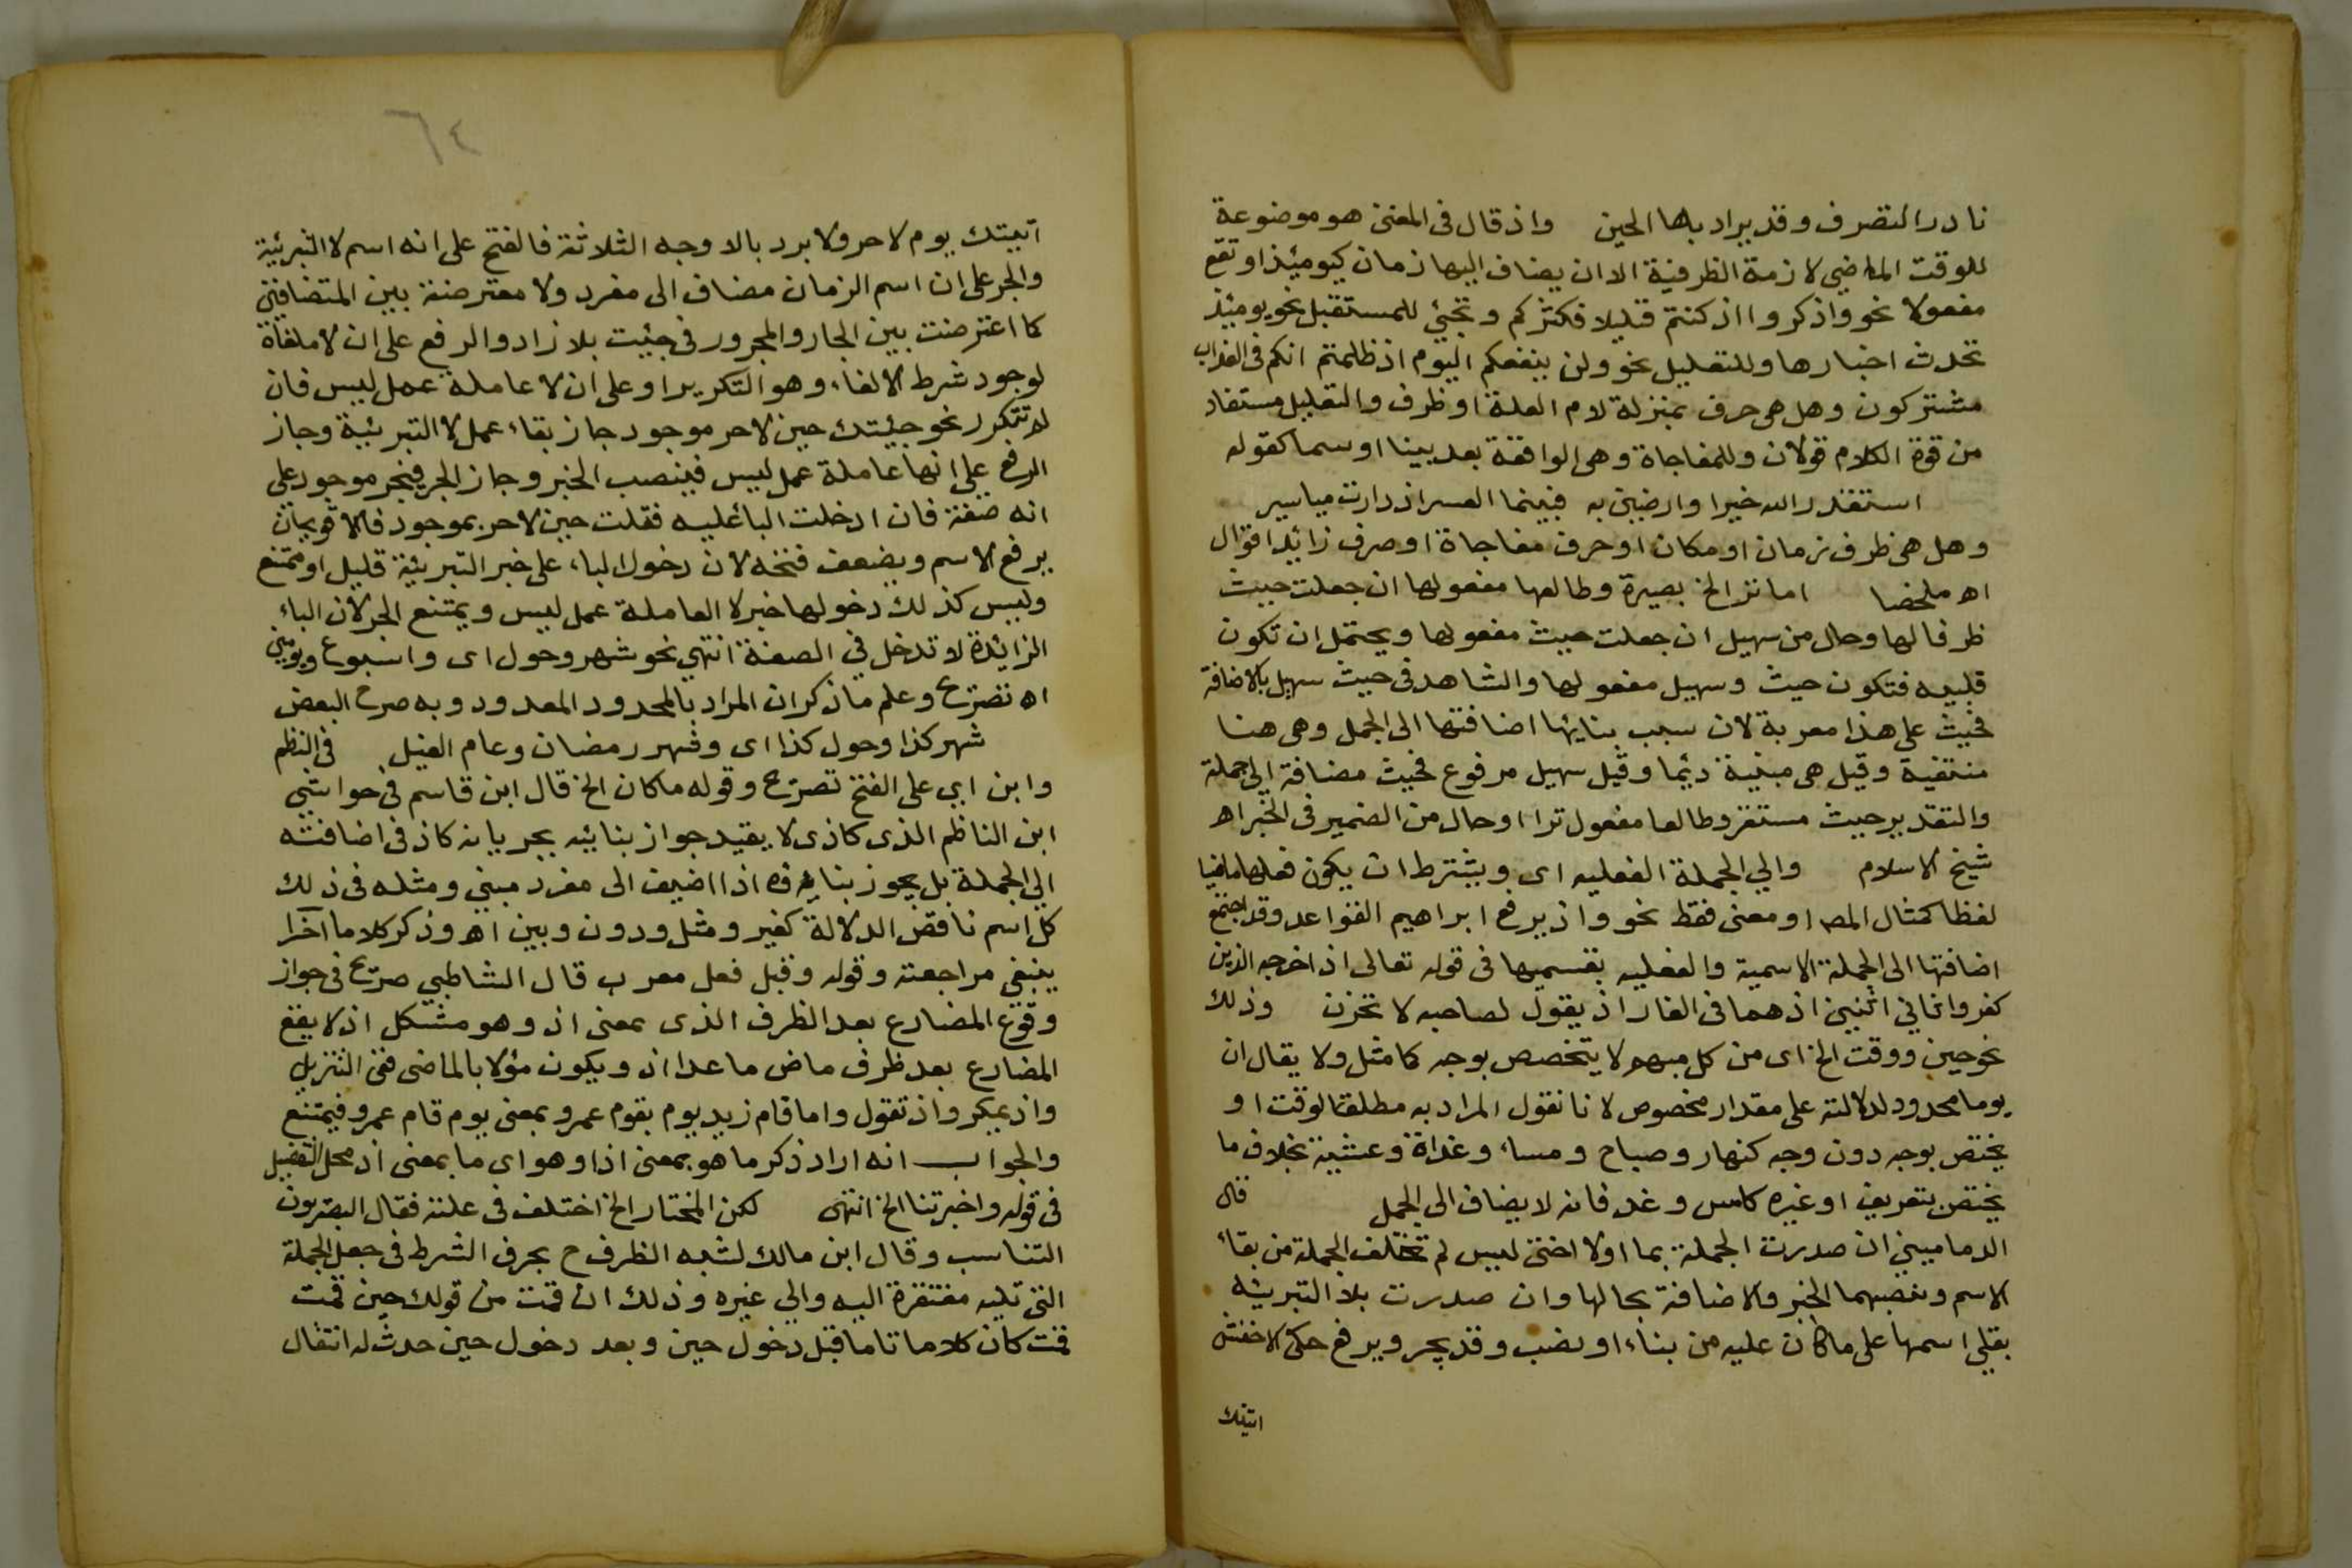 نادر التصرف وقد يراد بها الحين واذ قال فى المغنى هو موضوعة
للوقت الماضي لازمة الظرفية الا ان يضاف اليها زمان كيومئذ او تقع
مفعولا نحو واذكروا اذ كنتم قليلا فكثركم وتجئ للمستقبل نحو يومئذ
تحدث اخبارها وللتعليل نحو ولن ينفعكم اليوم اذ ظلمتم انكم فى العذاب
مشتركون وهل هى حرف بمنزلة لام العلة او ظرف والتعليل مستفاد
من قوة الكلام قولان وللمفاجاة وهى الواقعة بعد بينا او سما كقوله
استقدر الله خيرا وارضين به فبينما العسر اذ دارت مياسير
وهل هى ظرف زمان او مكان او حرف مفاجاة او صرف زائد اقوال
اه ملخصا اما تر الخ بصيرة وطالعا مفعولها ان جعلت حيث
ظرفا لها وحال من سهيل ان جعلت حيث مفعولها ويحتمل ان تكون
قلبيه فتكون حيث وسهيل مفعولها والشاهد فى حيث سهيل بالاضافة
فحيث على هذا معربة لان سبب بنائها اضافتها الى الجمل وهى هنا
منتفية وقيل هى مبنية دئما وقيل سهيل مرفوع فحيث مضافة الى جملة
والتقدير حيث مستقر وطالعا مفعول ترا او حال من الضمير فى الخبر اه
شيخ الاسلام والي الجملة الفعليه اى ويشترط ان يكون فعلها ماضيا
لفظا كمثال المص او معنى فقط نحو واذ يرفع ابراهيم القواعد وقد اجتمع
اضافتها الى الجملة الاسمية والفعليه بقسميها فى قوله تعالى اذ اخرجه الذين
كفروا ثاني اثنين اذ هما فى الغار اذ يقول لصاحبه لا تحزن وذلك
نحو حين ووقت الخ اى من كل مبهم لا يتخصص بوجه كما مثل ولا يقال ان
يوما محدود لدلالته على مقدار مخصوص لانا نقول المراد به مطلقا لوقت او
يختص بوجه دون وجه كنهار وصباح ومساء وغداة وعشية بخلاف ما
يختص بتعريف او غيره كامس وغد فانه لا يضاف الى الجمل قال
الدماميني ان صدرت الجملة بما اولا اختى ليس لم تختلف الجملة من بقاء
الاسم ونصبهما الخبر والاضافة بحالها وان صدرت بلا التبريئه
بقلي اسمها على ما كان عليه من بناء او نصب وقد يجر ويرفع حكى الاخفش
اتيتك
٦٤
اتيتك يوم لا حر ولا برد بالاوجه الثلاثة فالفتح على انه اسم لا التبرئية
والجر على ان اسم الزمان مضاف الى مفرد ولا معترضة بين المتضايفين
كما اعترضت بين الجار والمجرور فى جئيت بلا زاد والرفع على ان لا ملغاة
لوجود شرط الالغاء وهو التكرير او على ان لا عاملة عمل ليس فان
لم تتكرر نحو جيئتك حين لا حر موجود جاز بقاء عمل لا التبرئية وجاز
الرفع على انها عاملة عمل ليس فينصب الخبر وجاز الجر فيجر موجود على
انه صفة فان ادخلت البا عليه فقلت حين لا حر بموجود فالاقوى
يرفع الاسم ويضعف فتحه لان دخول الباء على خبر التبرئية قليل او ممتنع
وليس كذلك دخولها خبر لا العاملة عمل ليس ويمتنع الجر لان الباء
الزائدة لا تدخل في الصفة انتهي نحو شهر وحول اى واسبوع ويومين
اه تصريح وعلم ما ذكر ان المراد بالمحدود المعدود وبه صرح البعض
شهر كذا وحول كذا اى وشهر رمضان وعام الفيل فى النظم
وابن ابي على الفتح تصريح وقوله ما كان الخ قال ابن قاسم فى حواشي
ابن الناظم الذى كاذى لا يقيد جواز بنائيه بجريانه كاذ فى اضافته
الي الجملة بل يجوز بناؤه اذا اضيف الى مفرد مبني ومثله فى ذلك
كل اسم ناقص الدلالة كغير ومثل ودون وبين اه وذكر كلاما اخرا
ينبغي مراجعته وقوله وقبل فعل معرب قال الشاطبي صريح فى جواز
وقوع المضارع بعد الظرف الذى بمعنى اذ وهو مشكل اذ لا يقع
المضارع بعد ظرف ماض ماعدا اذ ويكون مؤلا بالماضى ففى التنزيل
واذ يمكر واذ تقول واما قام زيد يوم يقوم عمرو بمعنى يوم قام عمرو فيمتنع
والجواب انه اراد ذكر ما هو بمعنى اذا وهو اى ما بمعنى اذ محل التفصيل
فى قوله واخبرتنا الخ انتهى لكن المختار الخ اختلف فى علته فقال البصريون
التناسب وقال ابن مالك لشبه الظرف ح بحرف الشرط فى جعل الجملة
التى تليه مفتقرة اليه والي غيره وذلك ان قمت من قولك حين قمت
قمت كان كلاما تاما قبل دخول حين وبعد دخول حين حدث له انتقال